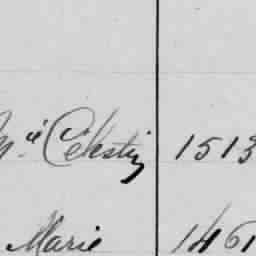 Mce Célestin 1513
Marie 1461